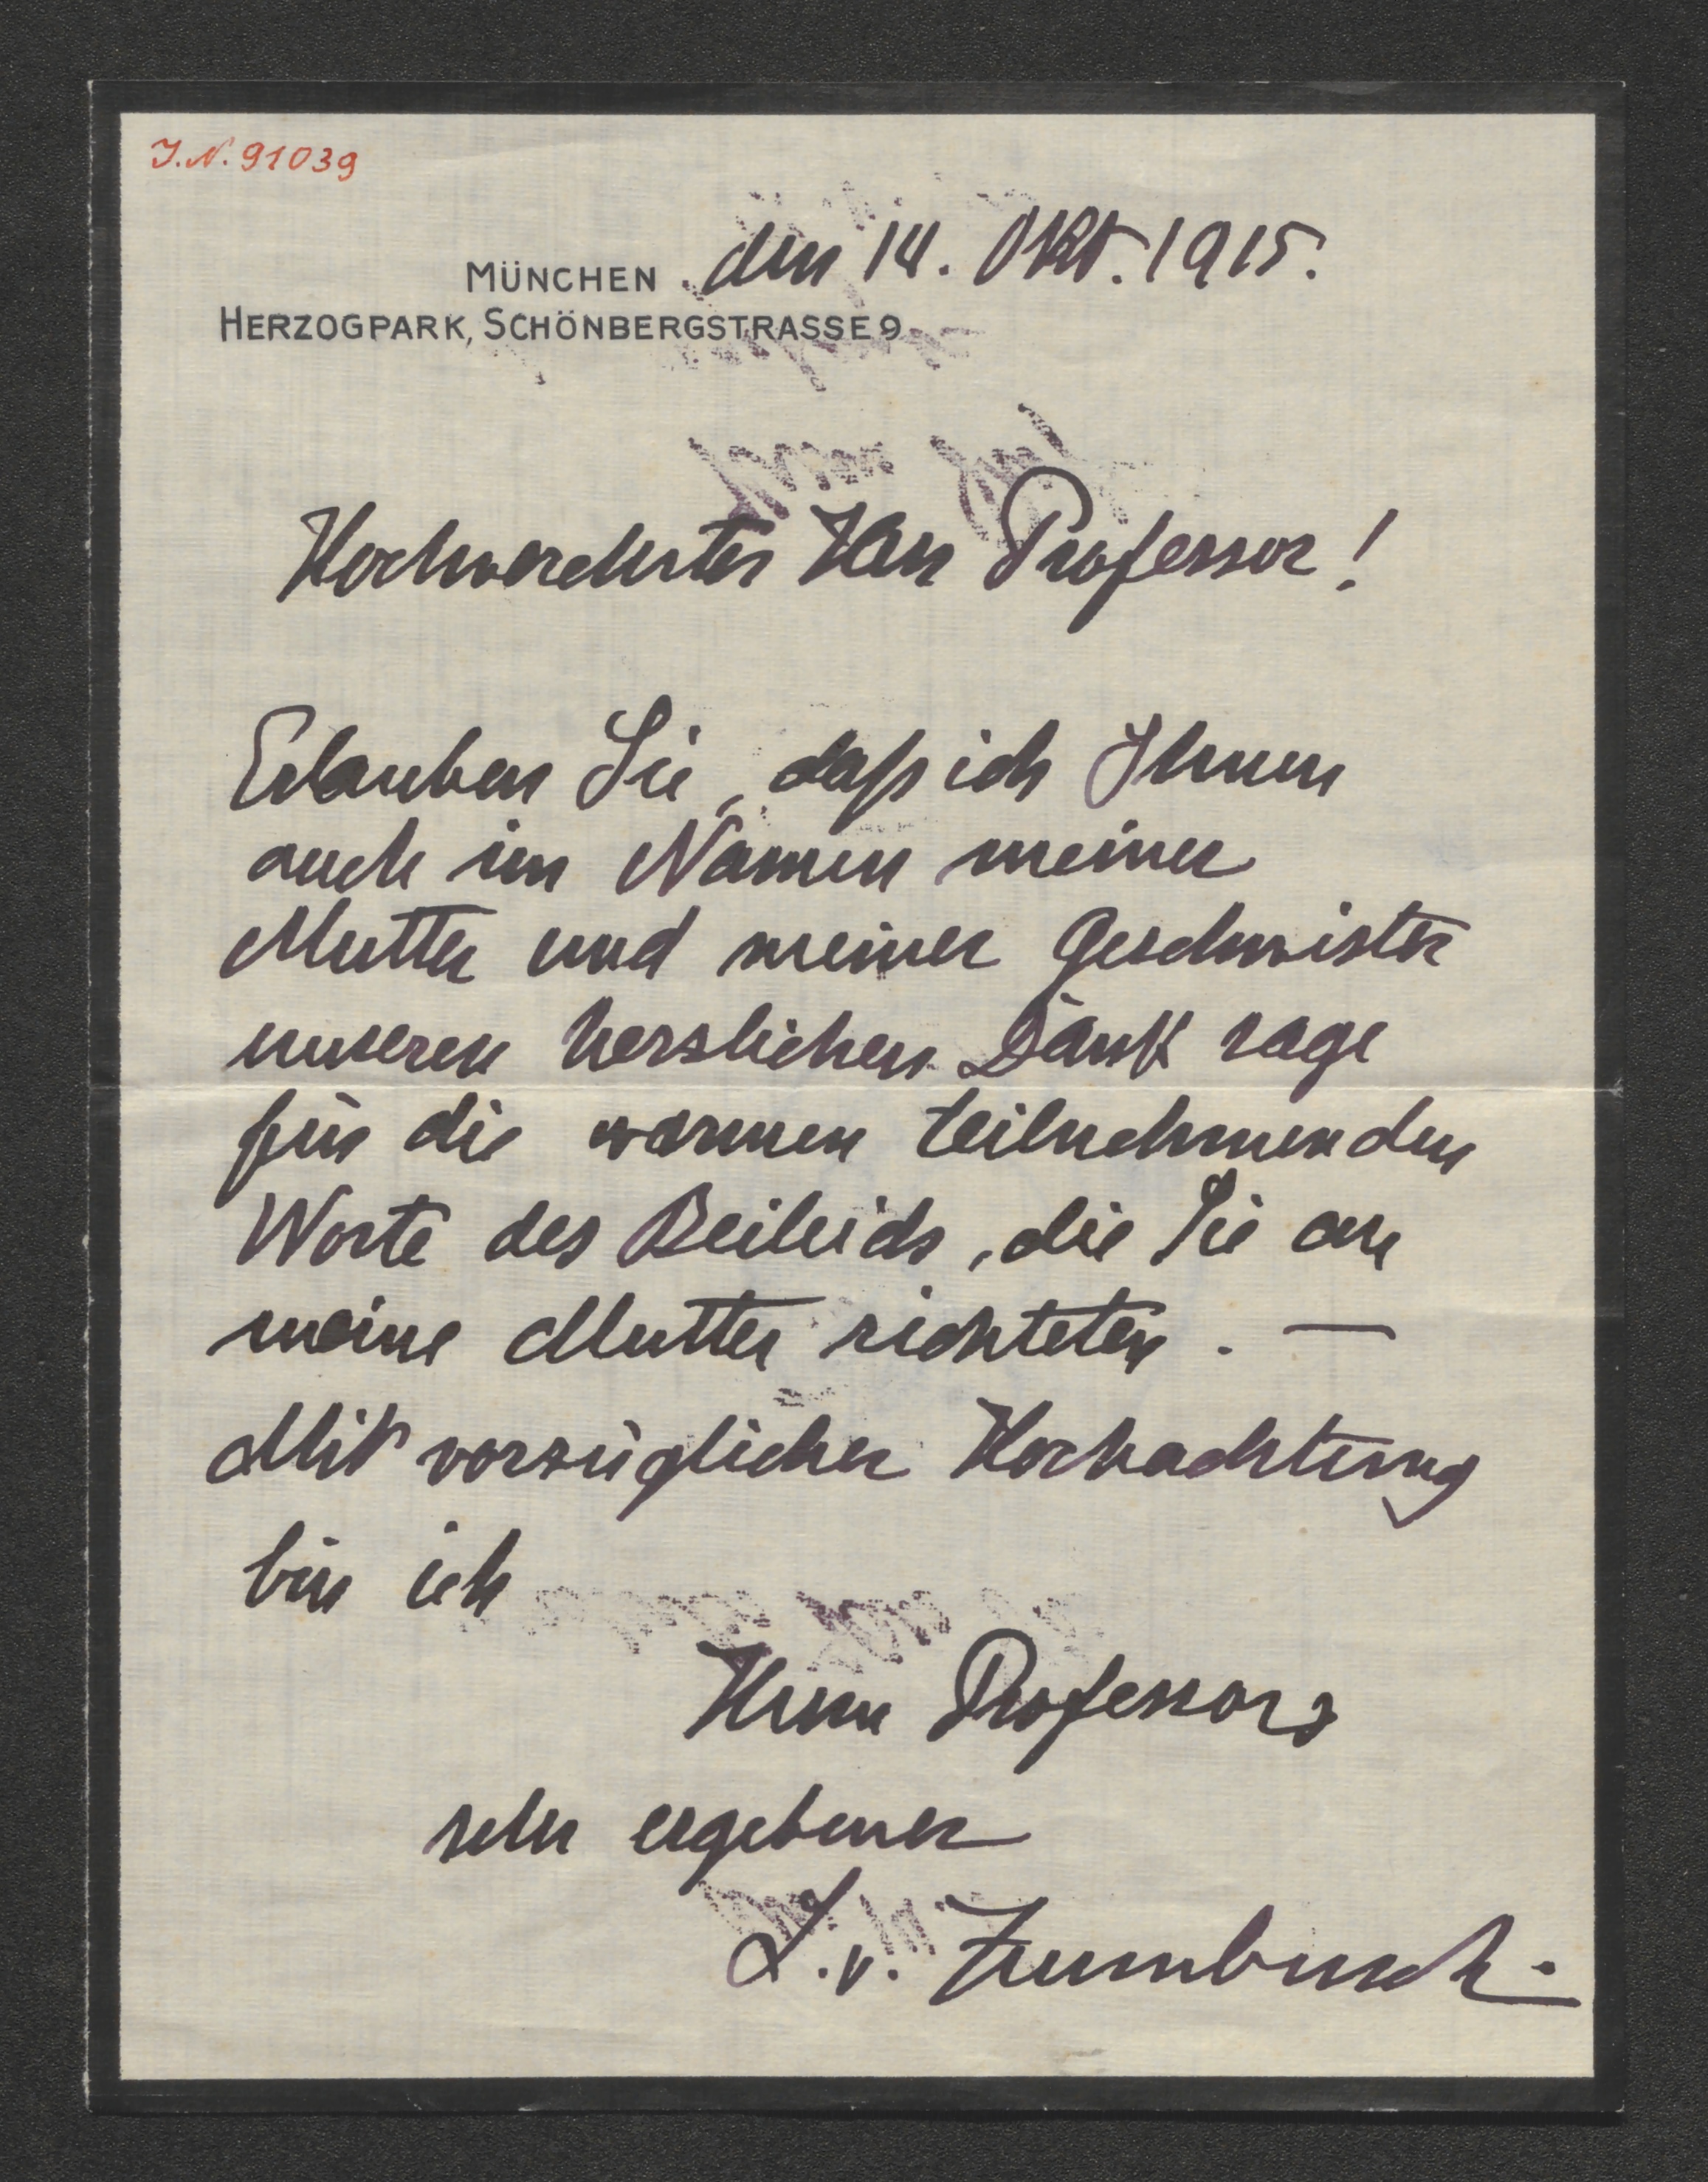 J.N. 91039
MÜNCHEN den 14. Okt. 1915.
HERZOGPARK, SCHÖNBERGSTRASSE 9
Hochverehrter Herr Professor!
Erlauben Sie, daß ich Ihnen
auch im Namen meiner
Mutter und meiner Geschwister
unseren herzlichen Dank sage
für die warmen teilnehmenden
Worte des Beileids, die Sie an
meine Mutter richteten. —
Mit vorzüglicher Hochachtung
bin ich
Herrn Professors
sehr ergebener
L. v. Zumbusch.